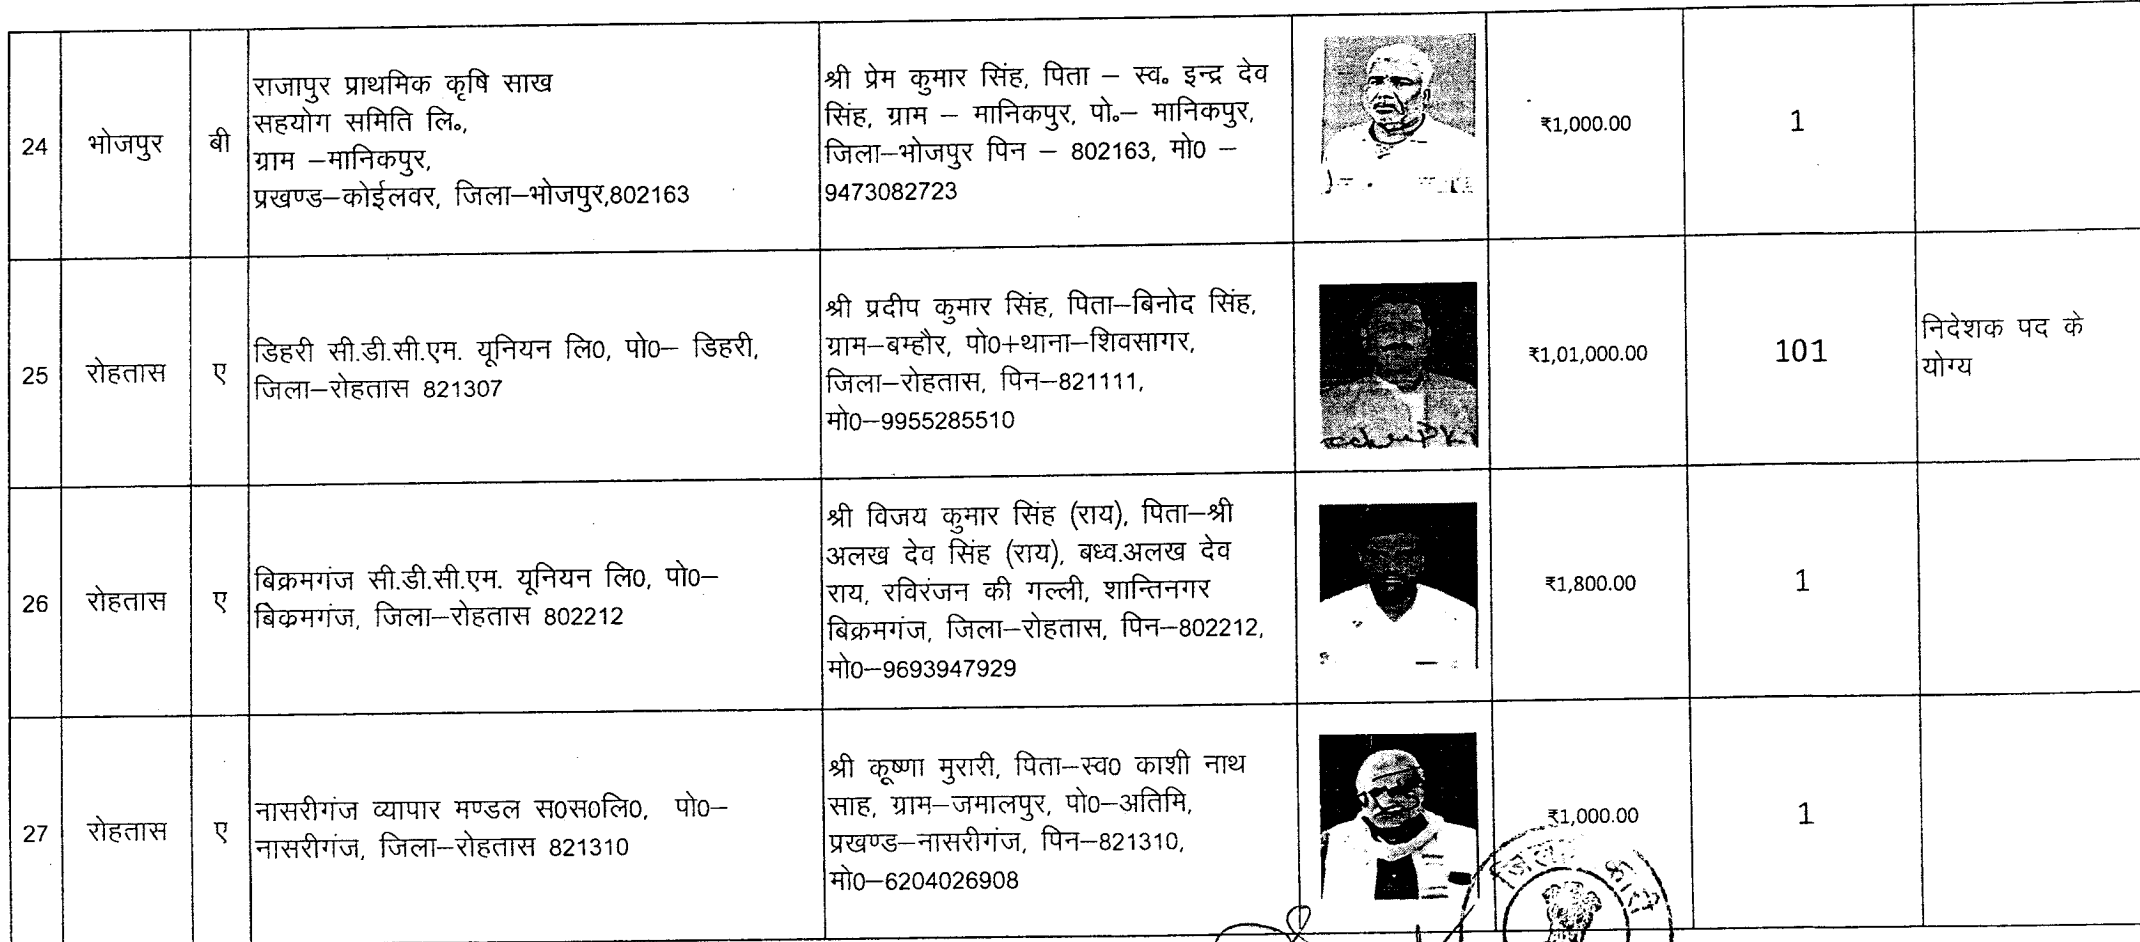 24
भोजपुर
बी
राजापुर प्राथमिक कृषि साख
सहयोग समिति लि॰,
ग्राम –मानिकपुर,
प्रखण्ड–कोईलवर, जिला–भोजपुर,802163
श्री प्रेम कुमार सिंह, पिता – स्व॰ इन्द्र देव
सिंह, ग्राम – मानिकपुर, पो॰– मानिकपुर,
जिला–भोजपुर पिन – 802163, मो0 –
9473082723
₹1,000.00
1
25
रोहतास
ए
डिहरी सी.डी.सी.एम. यूनियन लि0, पो0– डिहरी,
जिला–रोहतास 821307
श्री प्रदीप कुमार सिंह, पिता–बिनोद सिंह,
ग्राम–बम्हौर, पो0+थाना–शिवसागर,
जिला–रोहतास, पिन–821111,
मो0–9955285510
₹1,01,000.00
101
निदेशक पद के
योग्य
26
रोहतास
ए
बिक्रमगंज सी.डी.सी.एम. यूनियन लि0, पो0–
बिक्रमगंज, जिला–रोहतास 802212
श्री विजय कुमार सिंह (राय), पिता–श्री
अलख देव सिंह (राय), बध्व.अलख देव
राय, रविरंजन की गल्ली, शान्तिनगर
बिक्रमगंज, जिला–रोहतास, पिन–802212,
मो0–9693947929
₹1,800.00
1
27
रोहतास
ए
नासरीगंज व्यापार मण्डल स0स0लि0, पो0–
नासरीगंज, जिला–रोहतास 821310
श्री कृूष्णा मुरारी, पिता–स्व0 काशी नाथ
साह, ग्राम–जमालपुर, पो0–अतिमि,
प्रखण्ड–नासरीगंज, पिन–821310,
मो0–6204026908
₹1,000.00
1